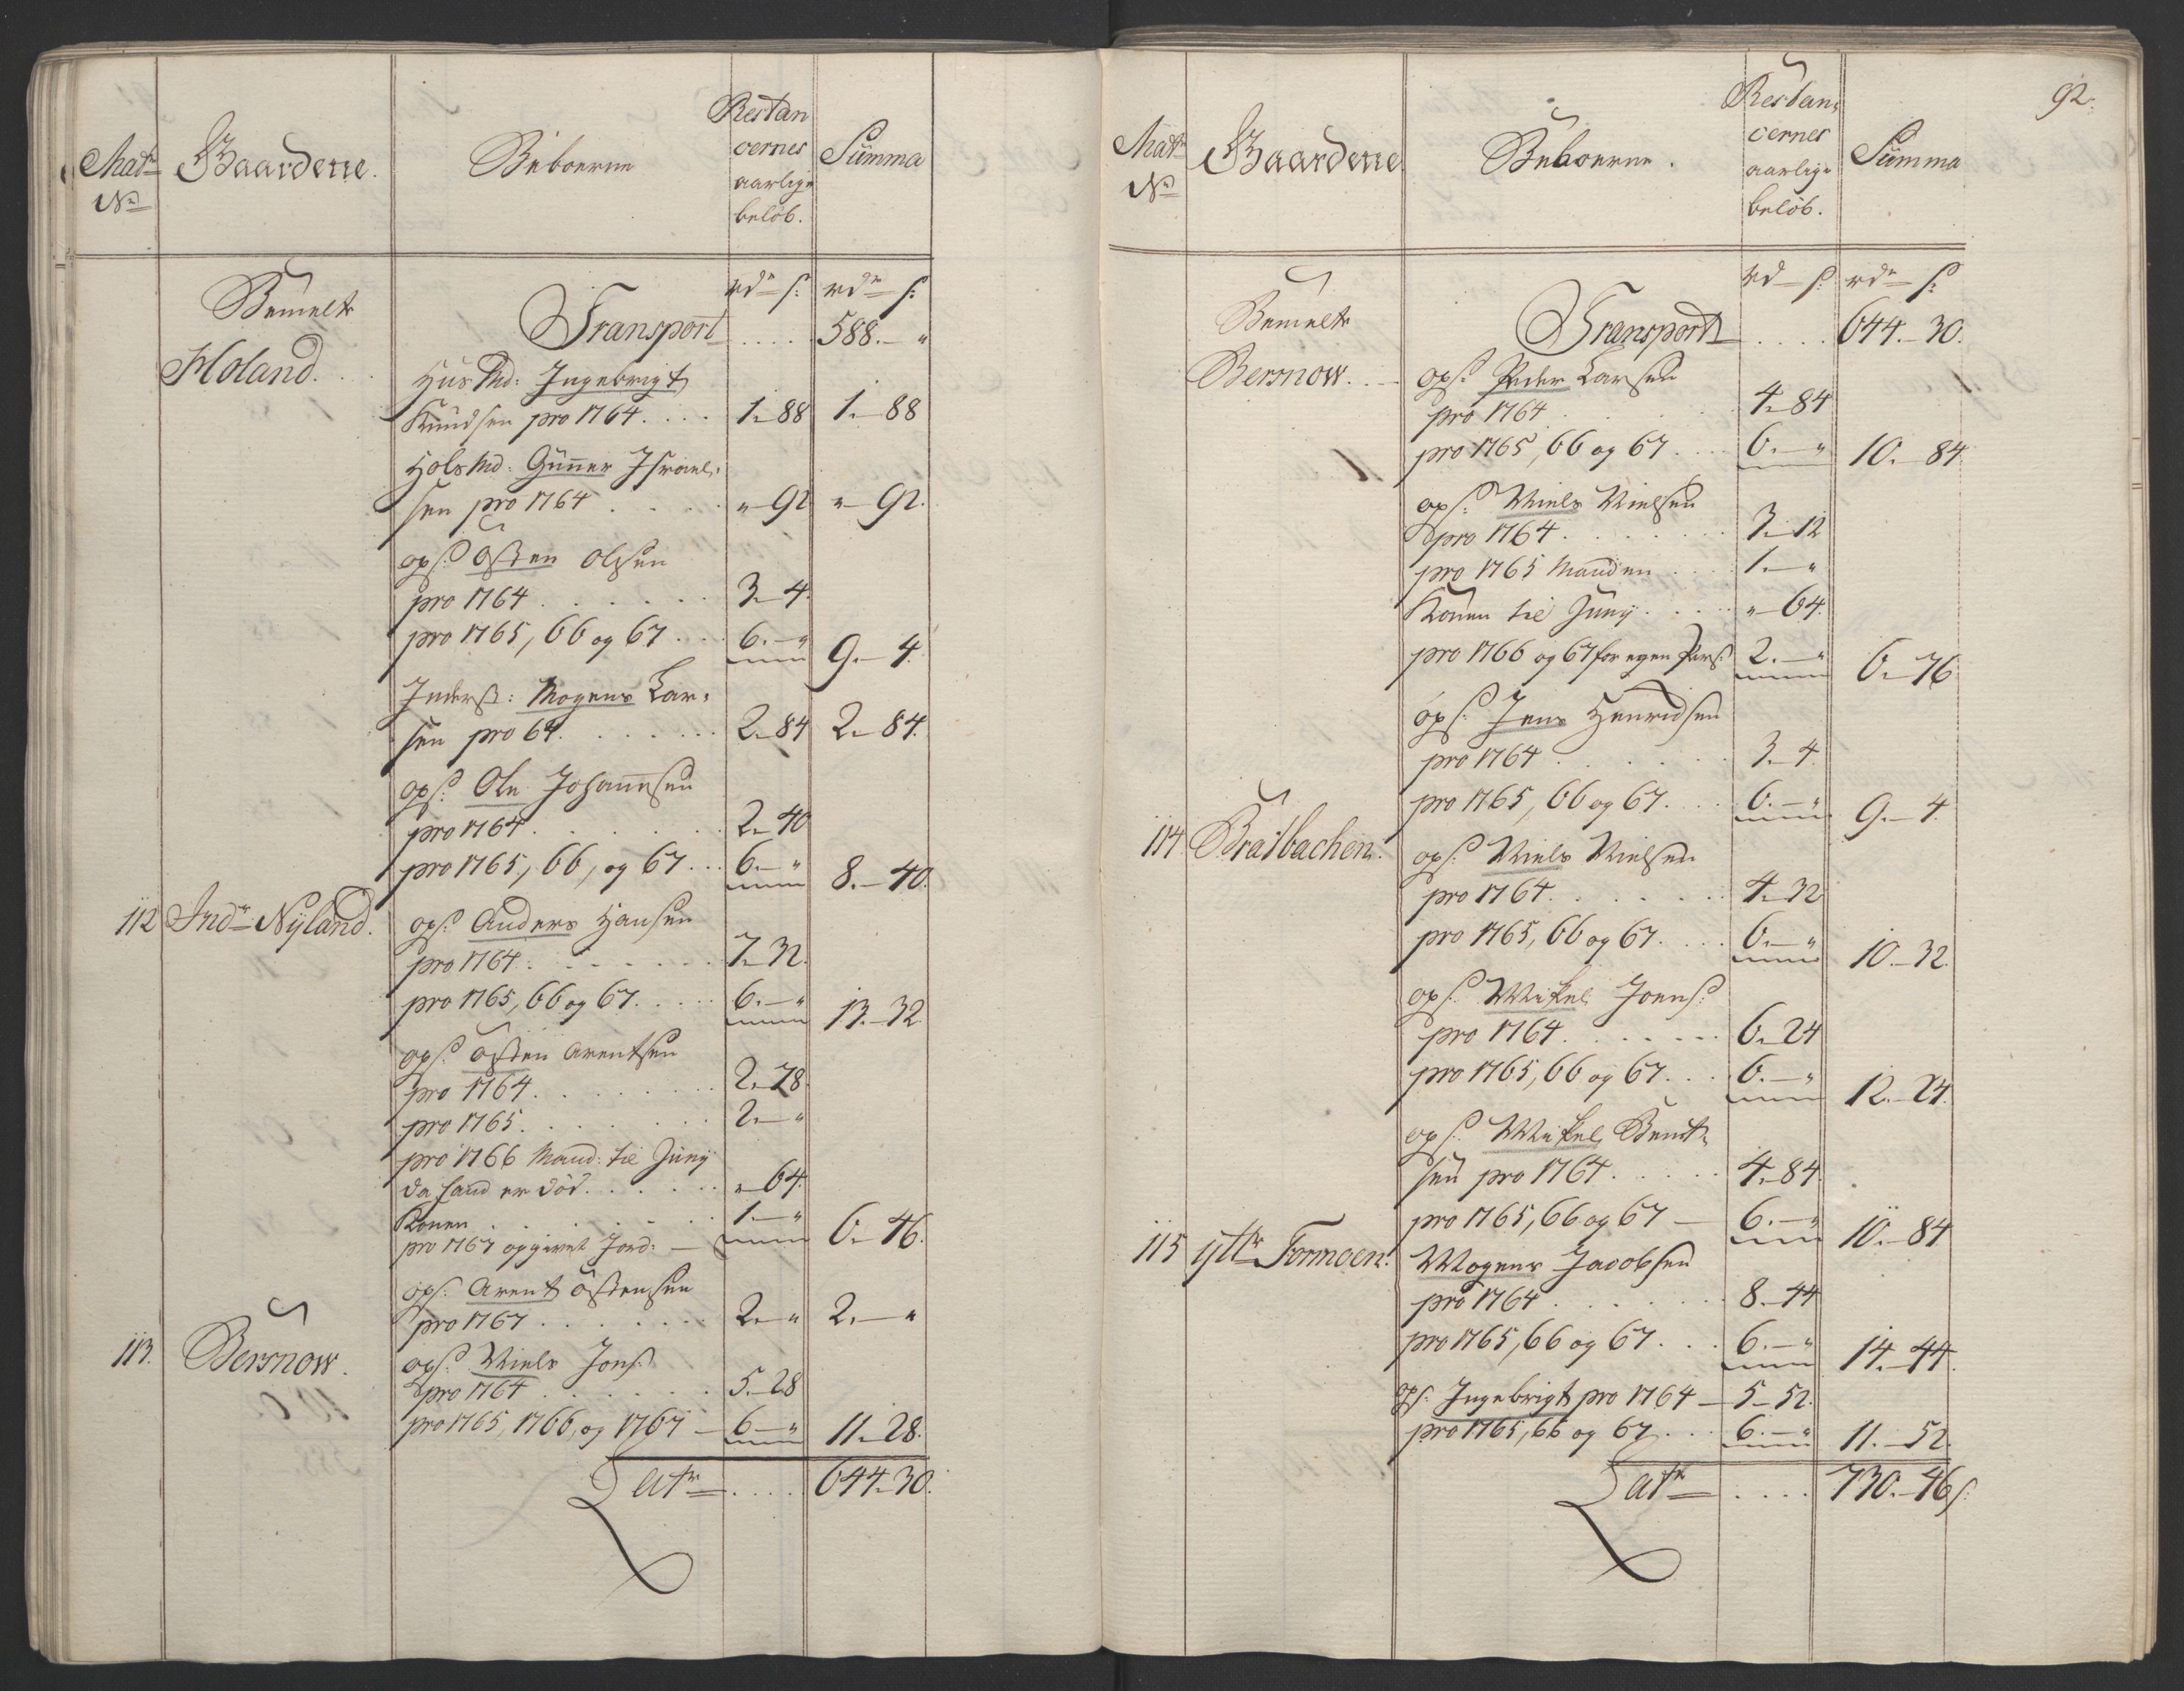 Matr: No Gaardene. Beboerne Restan cernes aarlige beløb. Summa
rdr s: rdr s:
Bemelte Transport .... 588.- "
Holand. . . Huusmd: Ingebrigt
Knudsen pro 1764. . . . 1.-88 1.-88
Holsmd: Gunner Israel:
sen pro 1764 . . . . "-92 "-92.
ops: Østen Olsen
pro 1764 . . . . . . 3.-4.
pro 1765, 66 og 67 . . . 6.-" 9.-4.
Inders: Mogens Lar:
sen pro 64. . . . . . . 2.-84 2.-84.
ops: Ole Johannesen
pro 1764 . . . . . . 2.-40
pro 1765, 66, og 67 . . . 6.-" 8.-40.
112 Indr Nyland. ops: Anders Hansen
pro 1764 . . . . . . . 7.-32.
pro 1765, 66 og 67. . . . . 6.-" 13.-32.
ops: Østen Arentsen
pro 1764 . . . . . . . 2.-78.
pro 1765. . . . . . . 2.-"
pro 1766 Mand: til Junij
da hand er død. . . . . . "-64.
Konen . . . . . . . 1.-" 6.-46.
pro 1767 opgivet Jord: —
ops: Arent Østensen
pro 1767 . . . . . . . 2.-" 2.-"
113. Bersnow. ops: Niels Jons:
pro 1764 . . . . . . . 5.-28
pro 1765, 1766, og 1767 — 6-" 11.-28.
Latr . . . . 644.-30.
92.
Matr No Gaardene Beboerne. Restan: cernes aarlige beløb. Summa
rd s: rdr s:
Bemelte Transport . . . . 644.-30.
Bersnow. . . ops: Peder Larsen
pro 1764 . . . . . . 4.-84
pro 1765, 66 og 67 . . . . 6.-" 10.-84
ops: Niels Nielsen
pro 1764 . . . . . . . 3.-12
pro 1765 Manden . . . 1.-"
Konen til Junij . . . . "-64.
pro 1766 og 67 for egen Pers: 2.-" 6.-76
ops: Jens Henricsen
pro 1764 . . . . . . 3.-4.
pro 1765, 66 og 67. . . . 6.-" 9.-4.
114. Bratbachen. ops: Niels Nielsen
pro 1764. . . . . . . 4.-32
pro 1765, 66 og 67. . . . . 6.-" 10.-32.
ops: Mikel Joens:
pro 1764. . . . . . . 6.-24
pro 1765, 66 og 67. . . . 6.-" 12.-24.
ops: Mikel Bendt:
sen pro 1764. . . . . . 4.-84.
pro 1765, 66 og 67 — 6.-" 10.-84
115 ytter Formoen. Mogens Jacobsen
pro 1764 . . . . . . 8.-44
pro 1765, 66 og 67. . . . 6.-" 14.-44.
ops: Ingebrigt pro 1764 — 5-52.
pro 1765, 66 og 67 . . . 6.-" 11.-52.
Latr . . . . 730.-46 s: